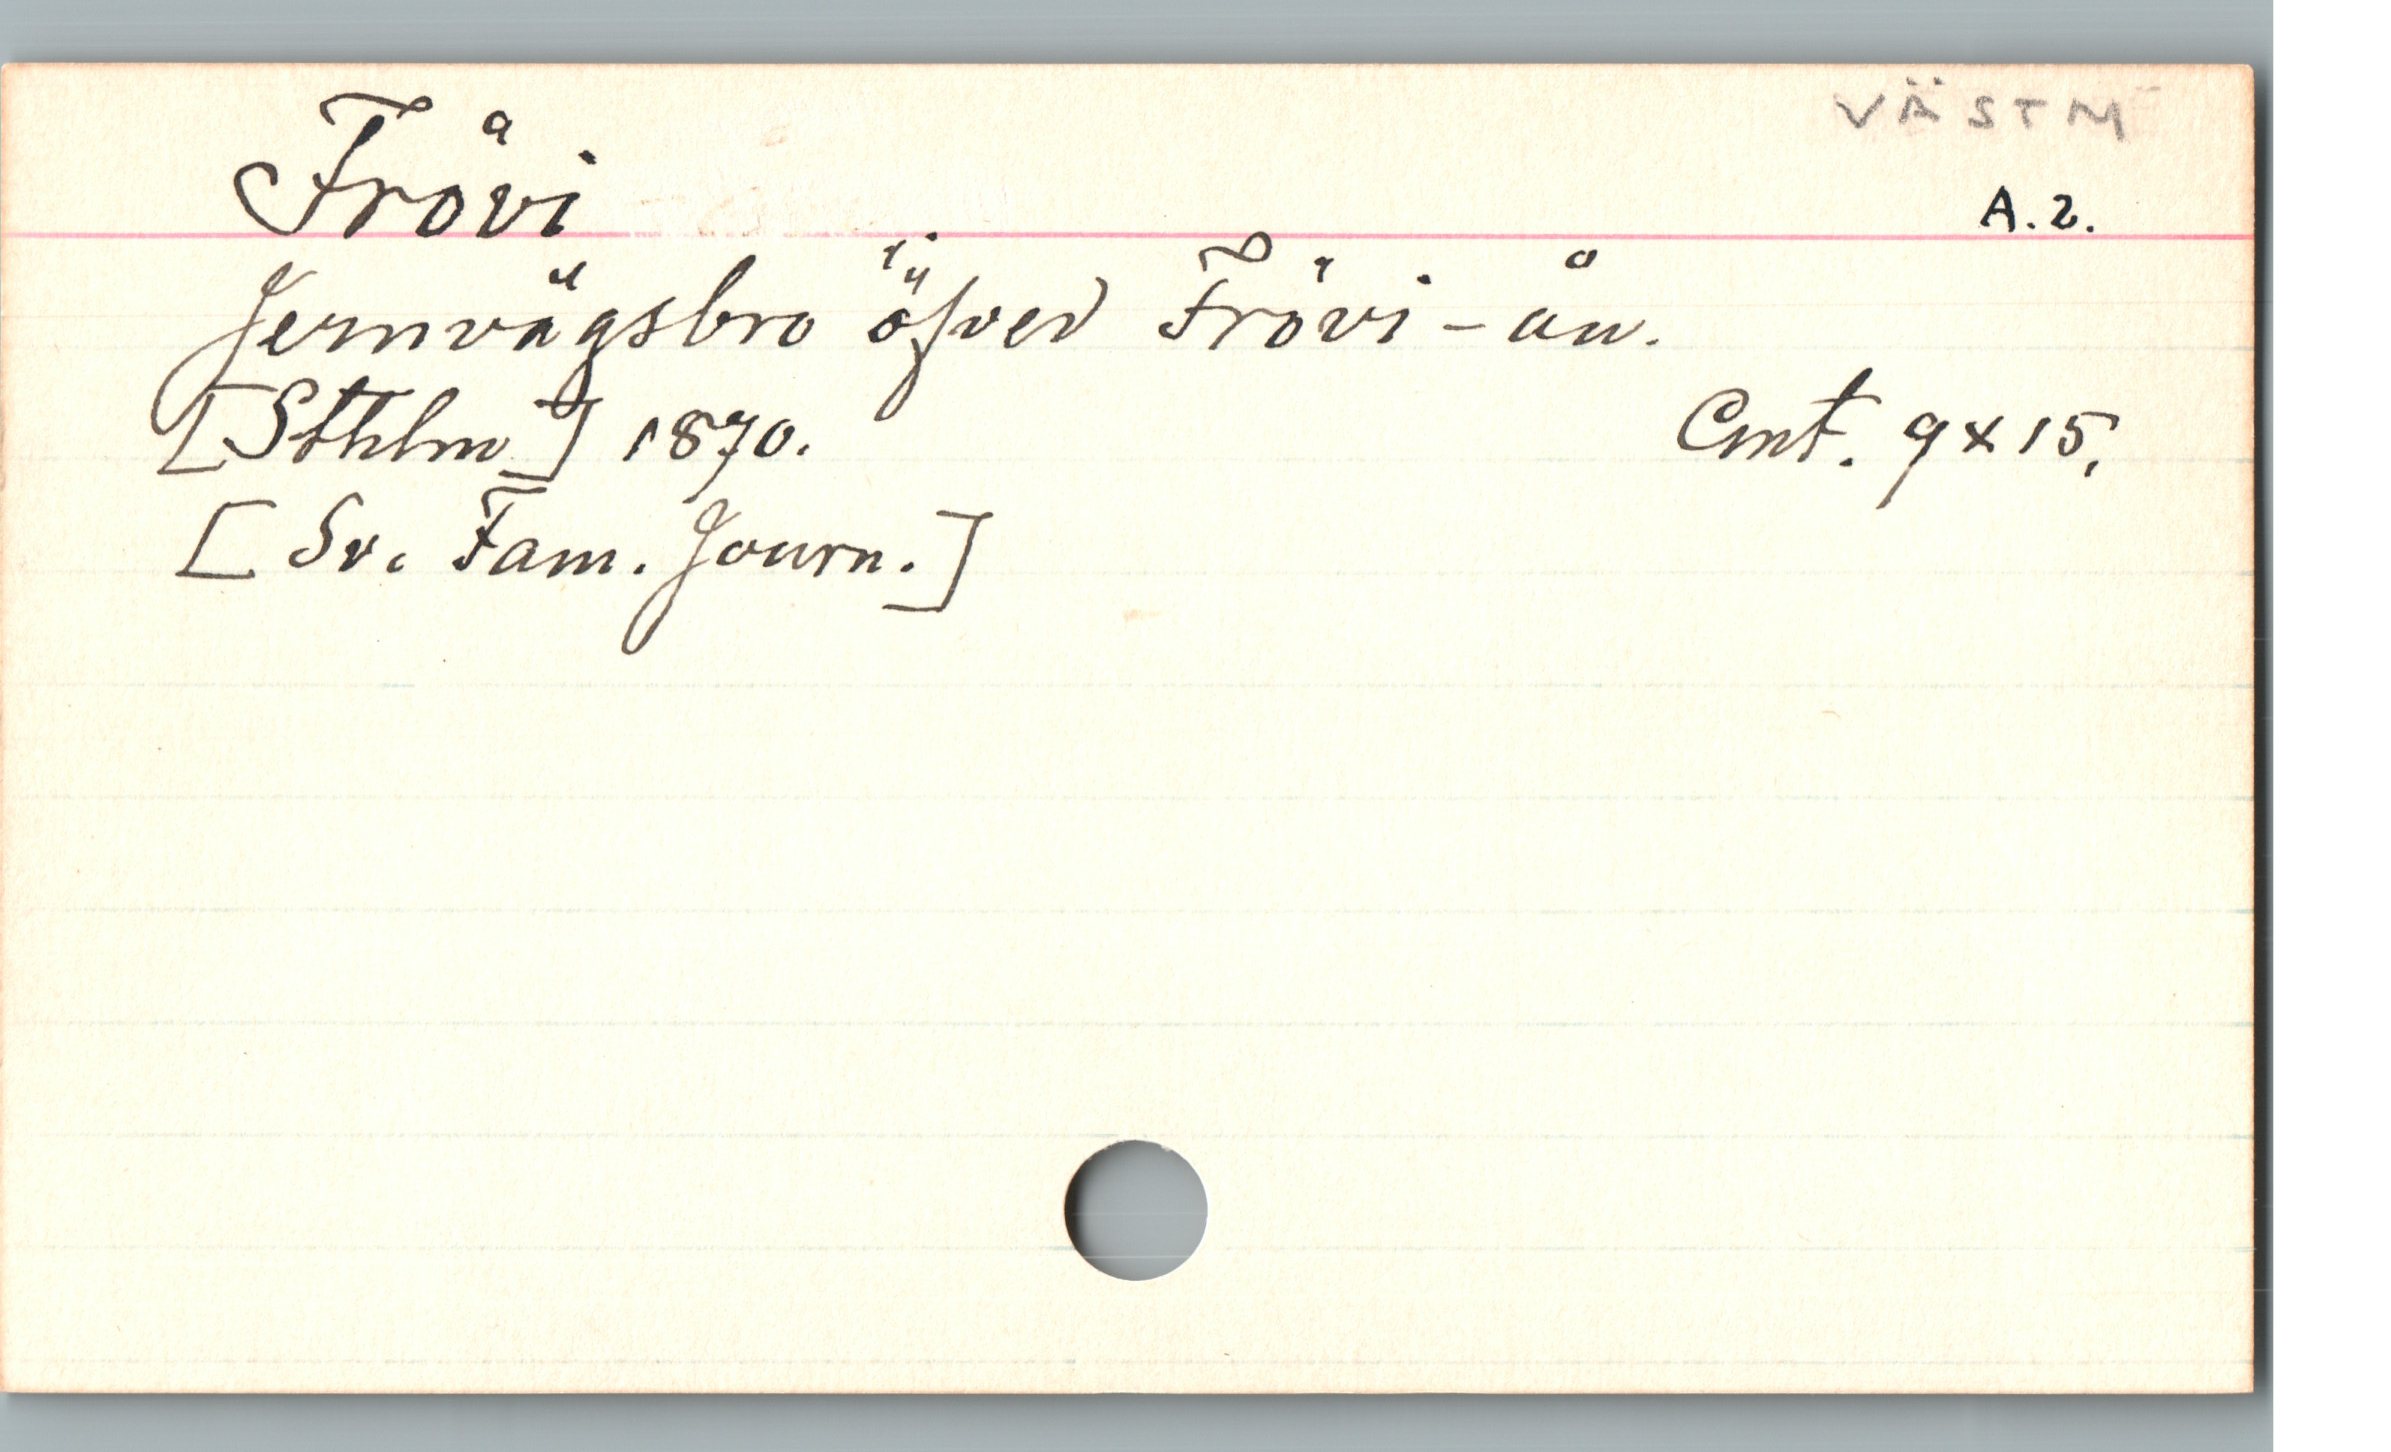 VÄSTM
Frövi
A. 2.
Jernvägsbro öfver Frövi-ån.
[Sthlm] 1870. Cmt. 9 x 15.
[Sv. Fam. Journ.]